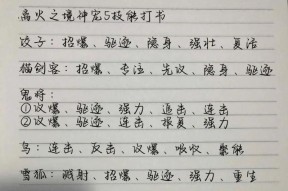 高火之境神宠5技能打书
饺子：招爆、驱逐、隐身、强壮、复活
猫剑客：招爆、专注、先议、隐身、驱逐
鬼将：
①议爆、驱逐、强力、追击、连击
②议爆、驱逐、连击、报复、强力
鸟：连击、反击、议爆、吸收、聚能
雪狐：溅射、招爆、驱逐、强力、重生